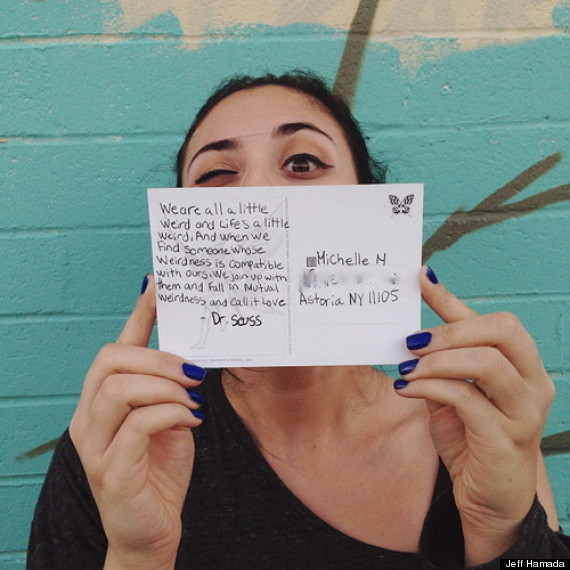 We are all a little
Weird and Life's a little
weird, And when we
Find someone whose
Weirdness is Compatible
with ours, We join up with
them and Fall in Mutual
weirdness and call it Love
- Dr. Seuss
Michelle M
Astoria NY 11105
Jeff Hamada